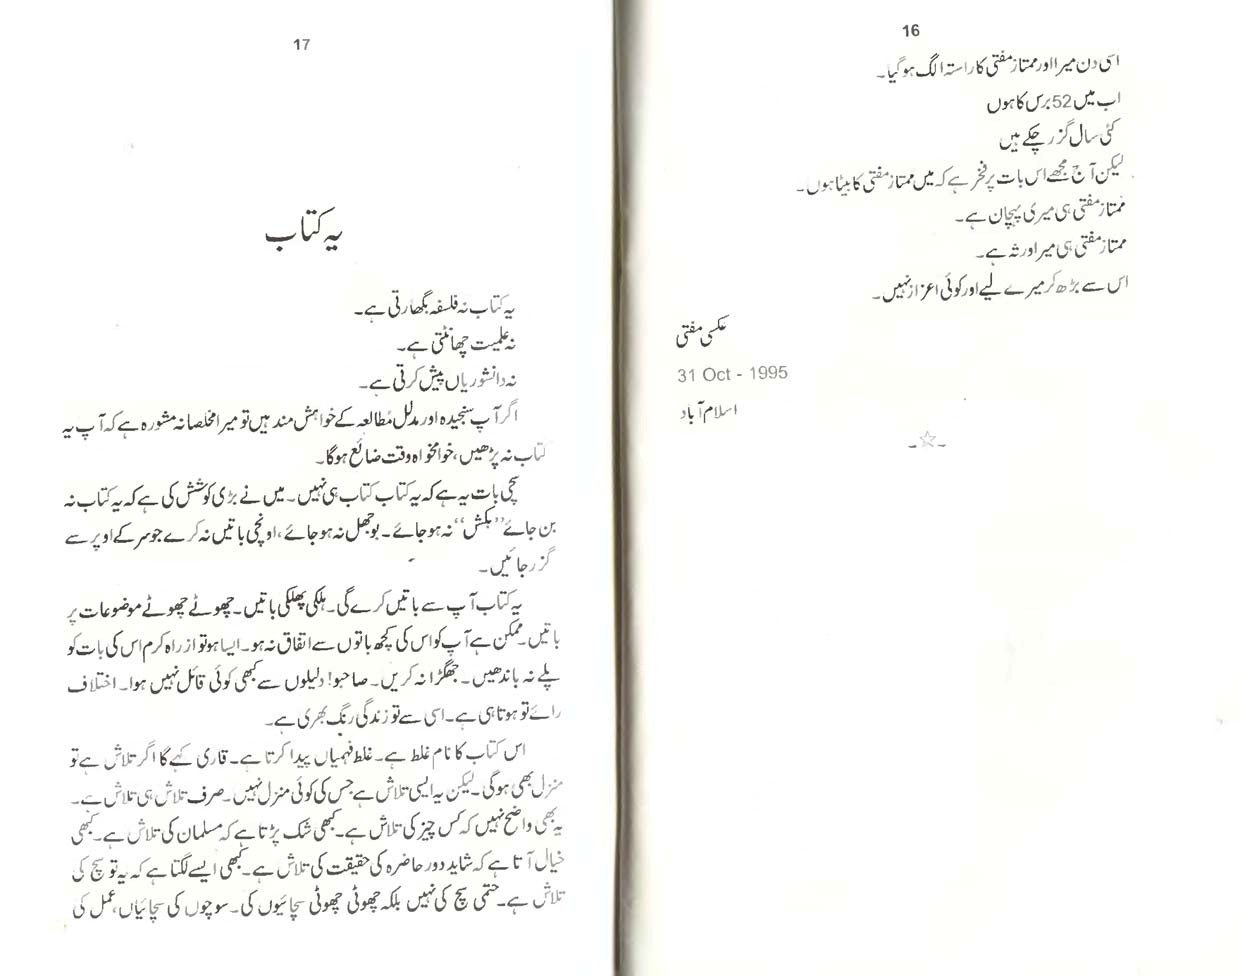 16
اسی دن میرا اور ممتاز مفتی کا راستہ الگ ہو گیا۔
اب میں 52 برس کا ہوں
کئی سال گزر چکے ہیں
لیکن آج مجھے اس بات پر فخر ہے کہ میں ممتاز مفتی کا بیٹا ہوں۔
ممتاز مفتی ہی میری پہچان ہے۔
ممتاز مفتی ہی میرا ورثہ ہے۔
اس سے بڑھ کر میرے لیے اور کوئی اعزاز نہیں۔
عکسی مفتی
31 Oct - 1995
اسلام آباد
17
یہ کتاب
یہ کتاب نہ فلسفہ بگھارتی ہے۔
نہ علمیت چھانٹتی ہے۔
نہ دانشوریاں پیش کرتی ہے۔
اگر آپ سنجیدہ اور مدلل مُطالعہ کے خواہش مند ہیں تو میرا مخلصانہ مشورہ ہے کہ آپ یہ
کتاب نہ پڑھیں، خوامخواہ وقت ضائع ہوگا۔
سچی بات یہ ہے کہ یہ کتاب کتاب ہی نہیں۔ میں نے بڑی کوشش کی ہے کہ یہ کتاب نہ
بن جائے ”بکش“ نہ ہو جائے۔ بوجھل نہ ہو جائے، اونچی باتیں نہ کرے جو سر کے اوپر سے
گزر جائیں۔
یہ کتاب آپ سے باتیں کرے گی۔ ہلکی پھلکی باتیں۔ چھوٹے چھوٹے موضوعات پر
باتیں۔ ممکن ہے آپ کو اس کی کچھ باتوں سے اتفاق نہ ہو۔ ایسا ہو تو از راہ کرم اس کی بات کو
پلے نہ باندھیں۔ جھگڑا نہ کریں۔ صاحبو! دلیلوں سے کبھی کوئی قائل نہیں ہوا۔ اختلاف
رائے تو ہوتا ہی ہے۔ اسی سے تو زندگی رنگ بھری ہے۔
اس کتاب کا نام غلط ہے۔ غلط فہمیاں پیدا کرتا ہے۔ قاری کہے گا اگر تلاش ہے تو
منزل بھی ہوگی۔ لیکن یہ ایسی تلاش ہے جس کی کوئی منزل نہیں۔ صرف تلاش ہی تلاش ہے۔
یہ بھی واضح نہیں کہ کس چیز کی تلاش ہے۔ کبھی شک پڑتا ہے کہ مسلمان کی تلاش ہے۔ کبھی
خیال آتا ہے کہ شاید دور حاضرہ کی حقیقت کی تلاش ہے۔ کبھی ایسے لگتا ہے کہ یہ تو سچ کی
تلاش ہے۔ حتمی سچ کی نہیں بلکہ چھوٹی چھوٹی سچائیوں کی۔ سوچوں کی سچائیاں، عمل کی